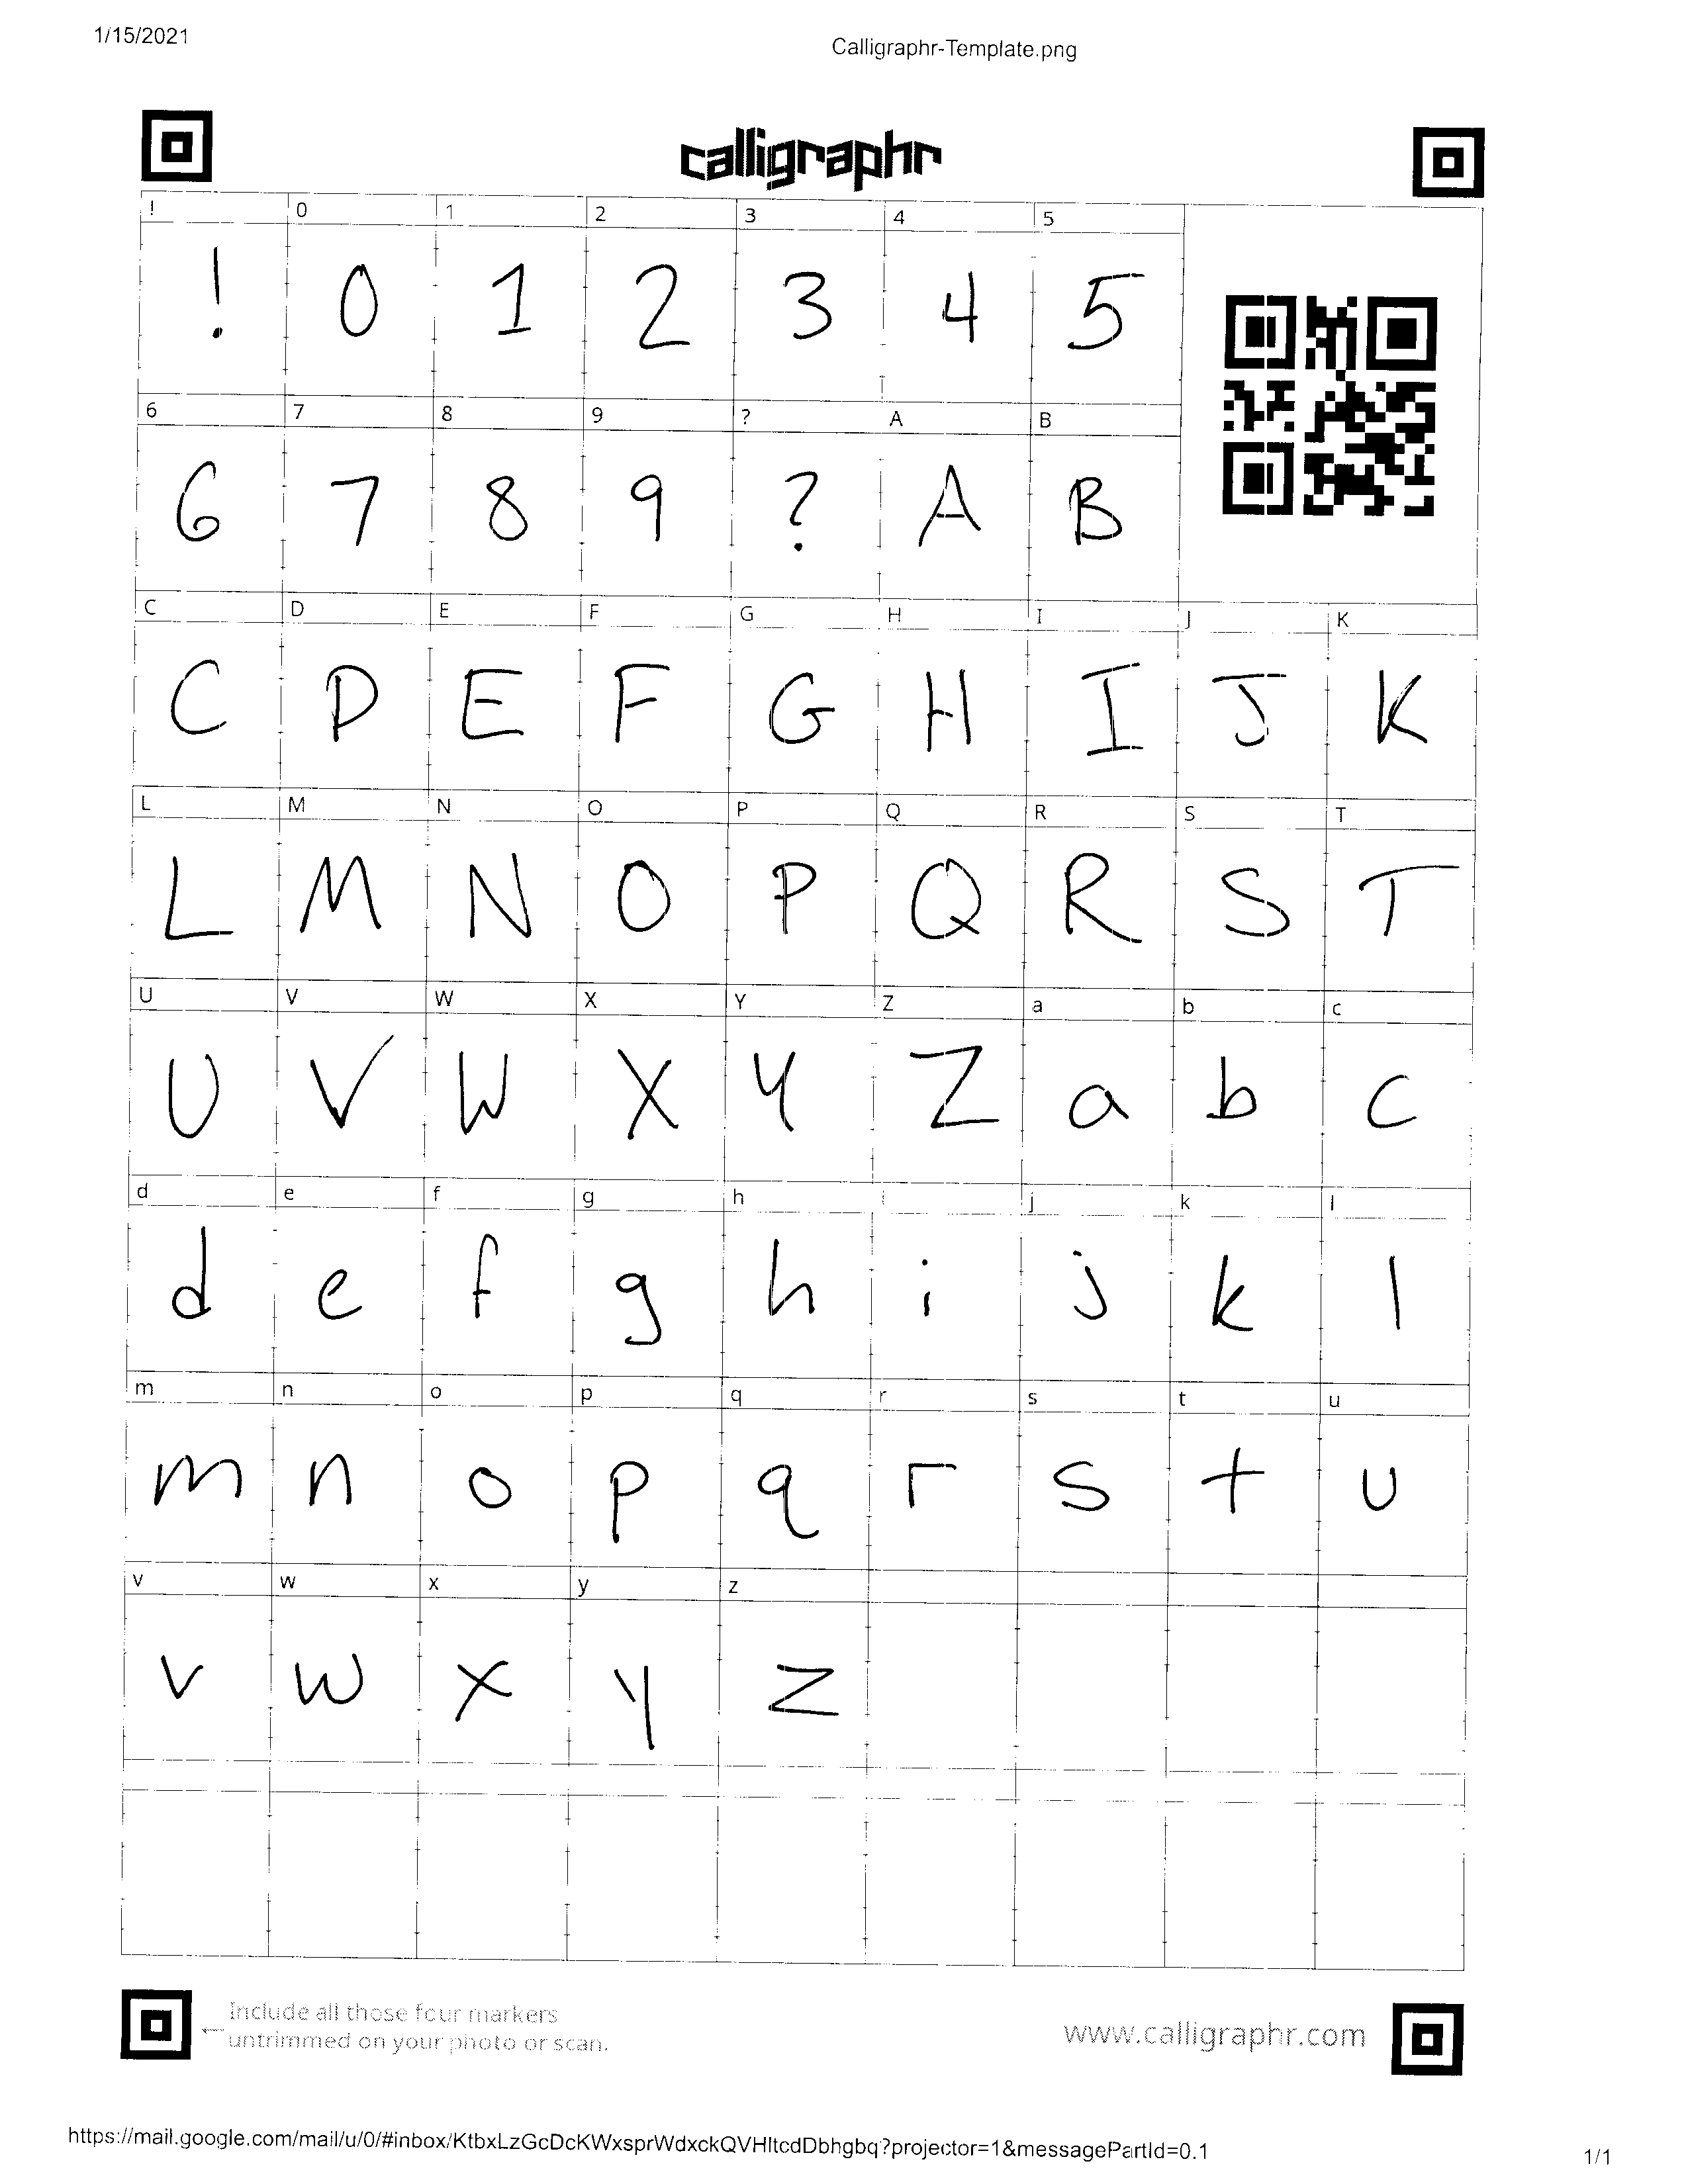 1/15/2021
Calligraphr-Template.png
calligraphr
! 0 1 2 3 4 5
! 0 1 2 3 4 5
6 7 8 9 ? A B
6 7 8 9 ? A B
C D E F G H I J K
C D E F G H I J K
L M N O P Q R S T
L M N O P Q R S T
U V W X Y Z a b c
U V W X Y Z a b c
d e f g h j k l
d e f g h i j k l
m n o p q r s t u
m n o p q r s t u
v w x y z
v w x y z
← Include all those four markers
untrimmed on your photo or scan.
www.calligraphr.com
https://mail.google.com/mail/u/0/#inbox/KtbxLzGcDcKWxsprWdxckQVHltcdDbhgbq?projector=1&messagePartId=0.1
1/1